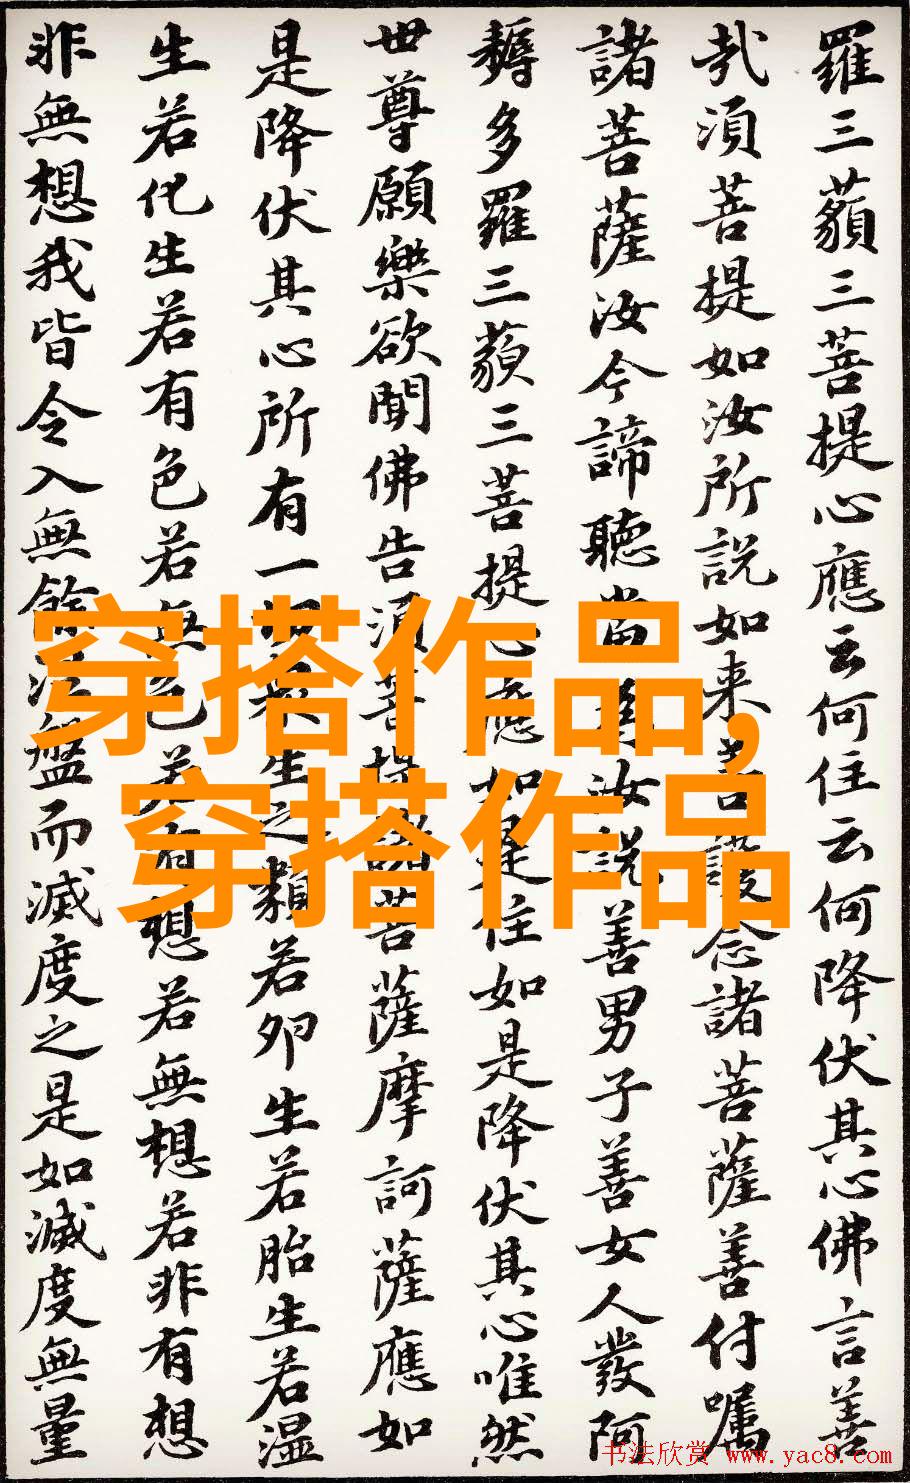 羅三藐三菩提心應云何住云何降伏其心佛言善
哉須菩提如汝所說如来善護念諸菩薩善付囑
諸菩薩汝今諦聽當為汝說善男子善女人發阿
耨多羅三藐三菩提心應如是住如是降伏其心唯然
世尊願樂欲聞佛告須菩提諸菩薩摩訶薩應如
是降伏其心所有一切眾生之類若卵生若胎生若湿
生若化生若有色若無色若有想若無想若非有想
非無想我皆令入無餘涅盤而滅度之是如滅度無量
穿搭作品,
穿搭作品
书法欣赏 www.yac8.com